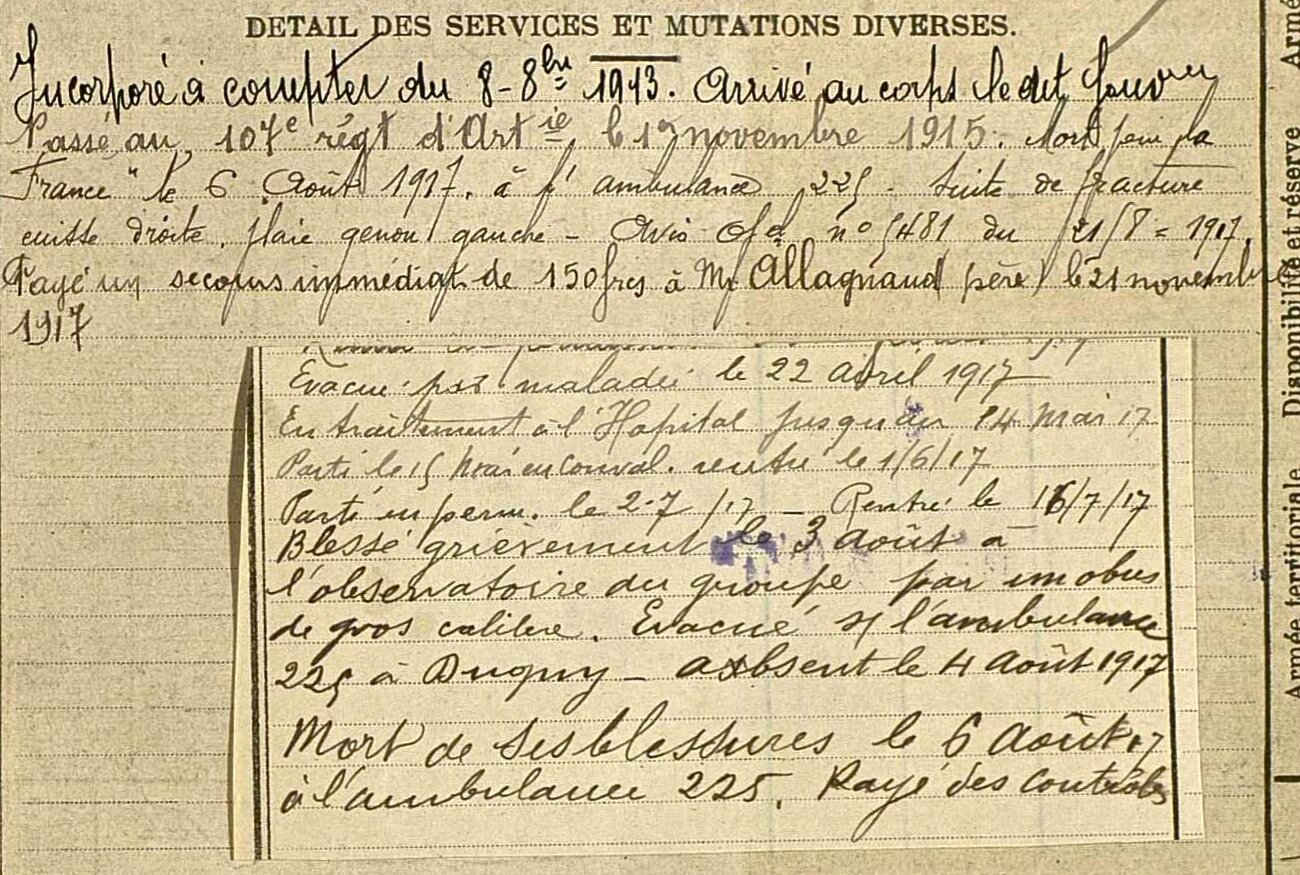 DETAIL DES SERVICES ET MUTATIONS DIVERSES.
Incorporé à compter du 8-8bre 1913. Arrivé au corps le dit jour
Passé au 107e régt d'Artie le 1er novembre 1915. Mort pour la
France" le 6 Août 1917. à l'ambulance 225 - Suite de fracture
cuisse droite, plaie genou gauche - Avis Of. n° 5481 du 21/8 = 1917.
Payé un secours immédiat de 150 frcs à Mr Allagnaud père) le 21 novembre
1917
Evacué pour maladie le 22 avril 1917
En traitement à l'Hôpital jusqu'au 14 Mai 17
Parti le 15 Mai en Conval. rentré le 1/6/17
Parti en perm. le 2-7/17 - Rentré le 16/7/17
Blessé grièvement le 3 Août à
l'observatoire du groupe par un obus
de gros calibre. Evacué s/ l'ambulance
225 à Dugny - absent le 4 Août 1917
Mort de ses blessures le 6 Août 17
à l'ambulance 225. Rayé des contrôles
Armée territoriale
Disponibilité et réserve
Armé